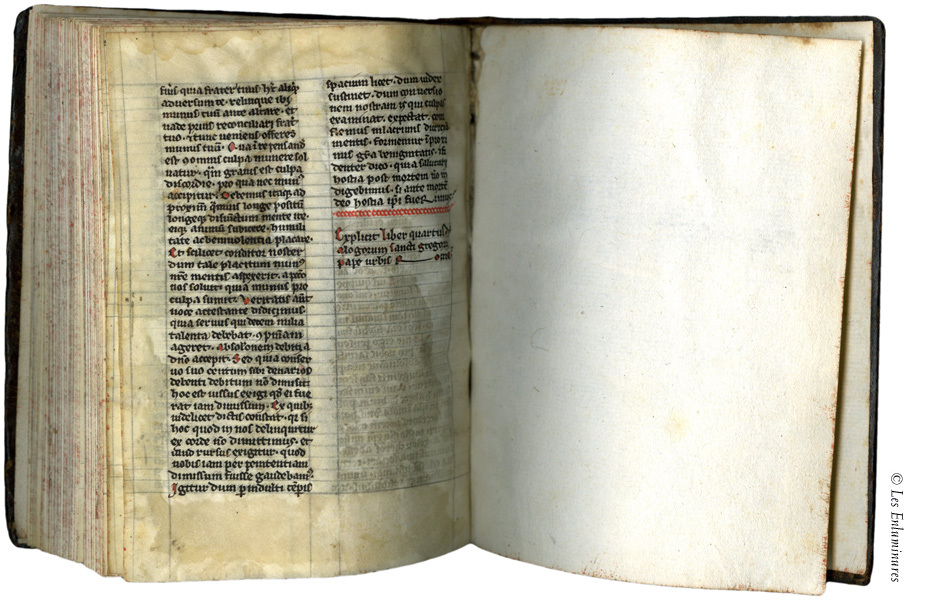 tuus quia frater tuus ht͛ aliqͥd
adversum te. relinque ibi
munus tuū ante altare. et
vade prius reconciliari frat͛
tuo. ⁊ tunc veniens offeres
munus tuū. Qua ī re pensand
est cū omnis culpa munere sol
vatur. qͣm gravis est culpa
discordie. pro qua nec munꝰ
accipitur. Debemus itaqꝫ ad
proximū quamvis longe positū
longeqꝫ disiunctum mente ire.
eiqꝫ animū subdere. humili
tate ac benivolentia placare.
Et scilicet conditor noster
dum tale placitum munꝰ
nr̄e mentis aspexerit. a peccō
nos solvit. quia munus pro
culpa sumit. Veritatis aūt
voce attestante didicimus.
quia servus qui decem milia
talenta debebat. cū p̄niam
ageret. absolutionem debiti a
dn̄o accepit. Sed quia conser
vo suo centum sibi denarios
debenti debitum nō dimisit.
hoc est iussus exigi qd̄ ei fue
rat iam dimissum. Ex quibꝫ
videlicet dictis constat. qꝛ si
hoc quod in nos delinquitur
ex corde nō dimittimus. et
illud rursus exigitur. quod
nobis iam per penitentiam
dimissum fuisse gaudebamꝰ.
Igitur dum ꝑ indulti tēpis
spacium licet. dum iudex
sustinet. dum conversio
nem nostram is qui culpas
examinat. expectat. con
flemus in lacrimis duriciā
mentis. formemus ī proxi
mis grā benignitatis. ⁊ fi
denter dico. quia salutari
hostia post mortem nō in
digebimus. si ante mortē
deo hostia ip̄i fuerimus.
Explicit liber quartus dy
alogorum sancti gregorii
pape urbis Rome
© Les Enluminures